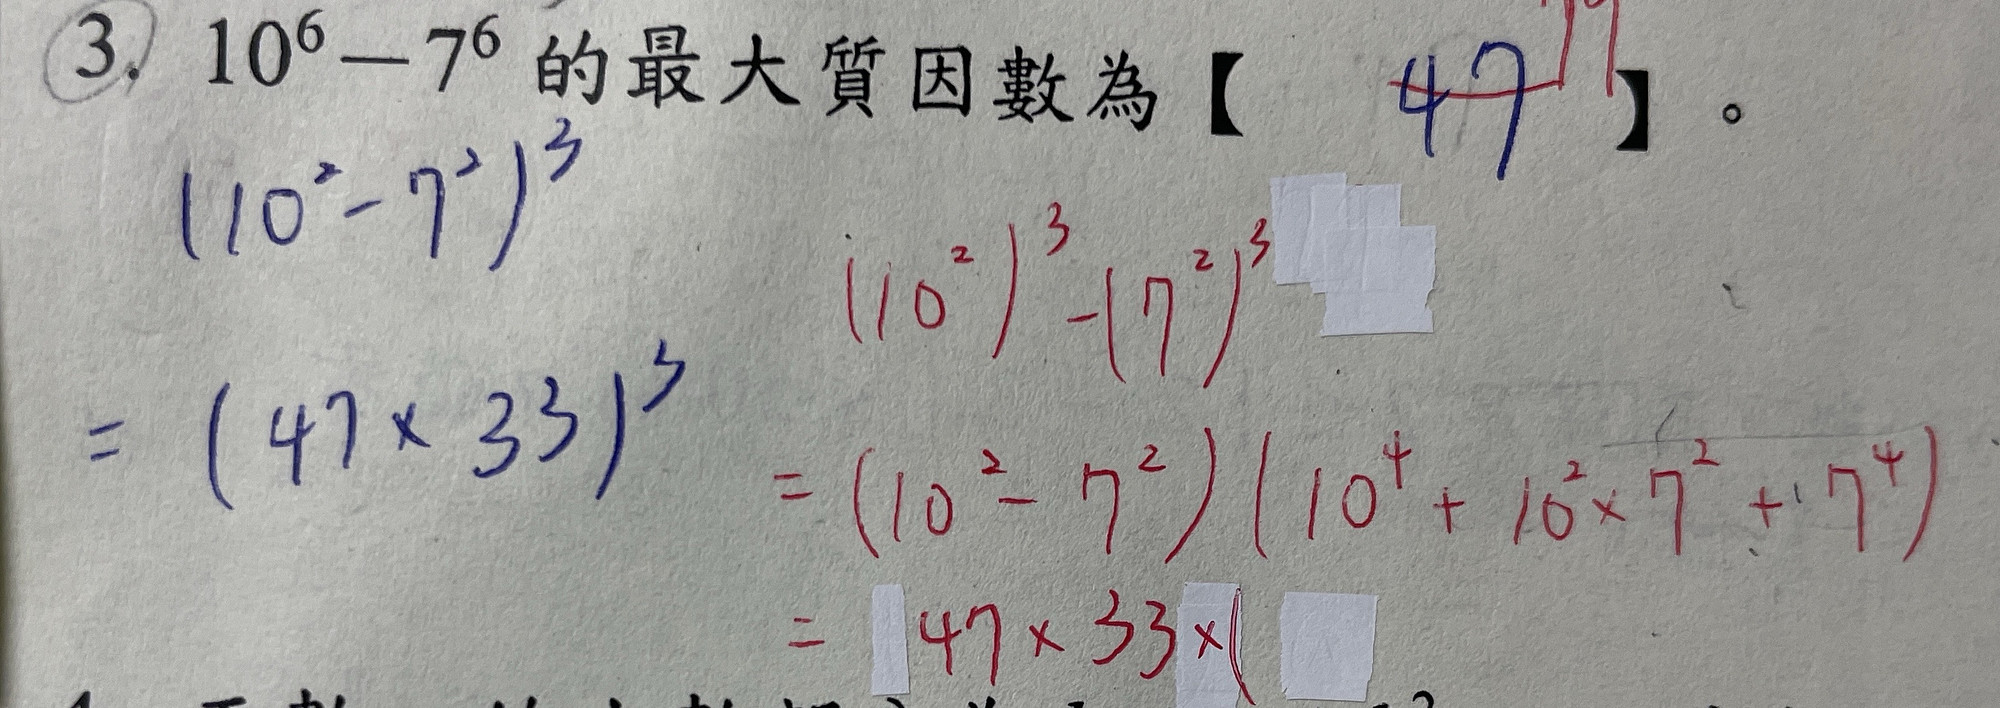 3. 10⁶－7⁶ 的最大質因數為【 47 】。
(10²-7²)³
= (47×33)³
(10²)³-(7²)³
= (10²-7²)(10⁴+10²×7²+7⁴)
= 47×33×(